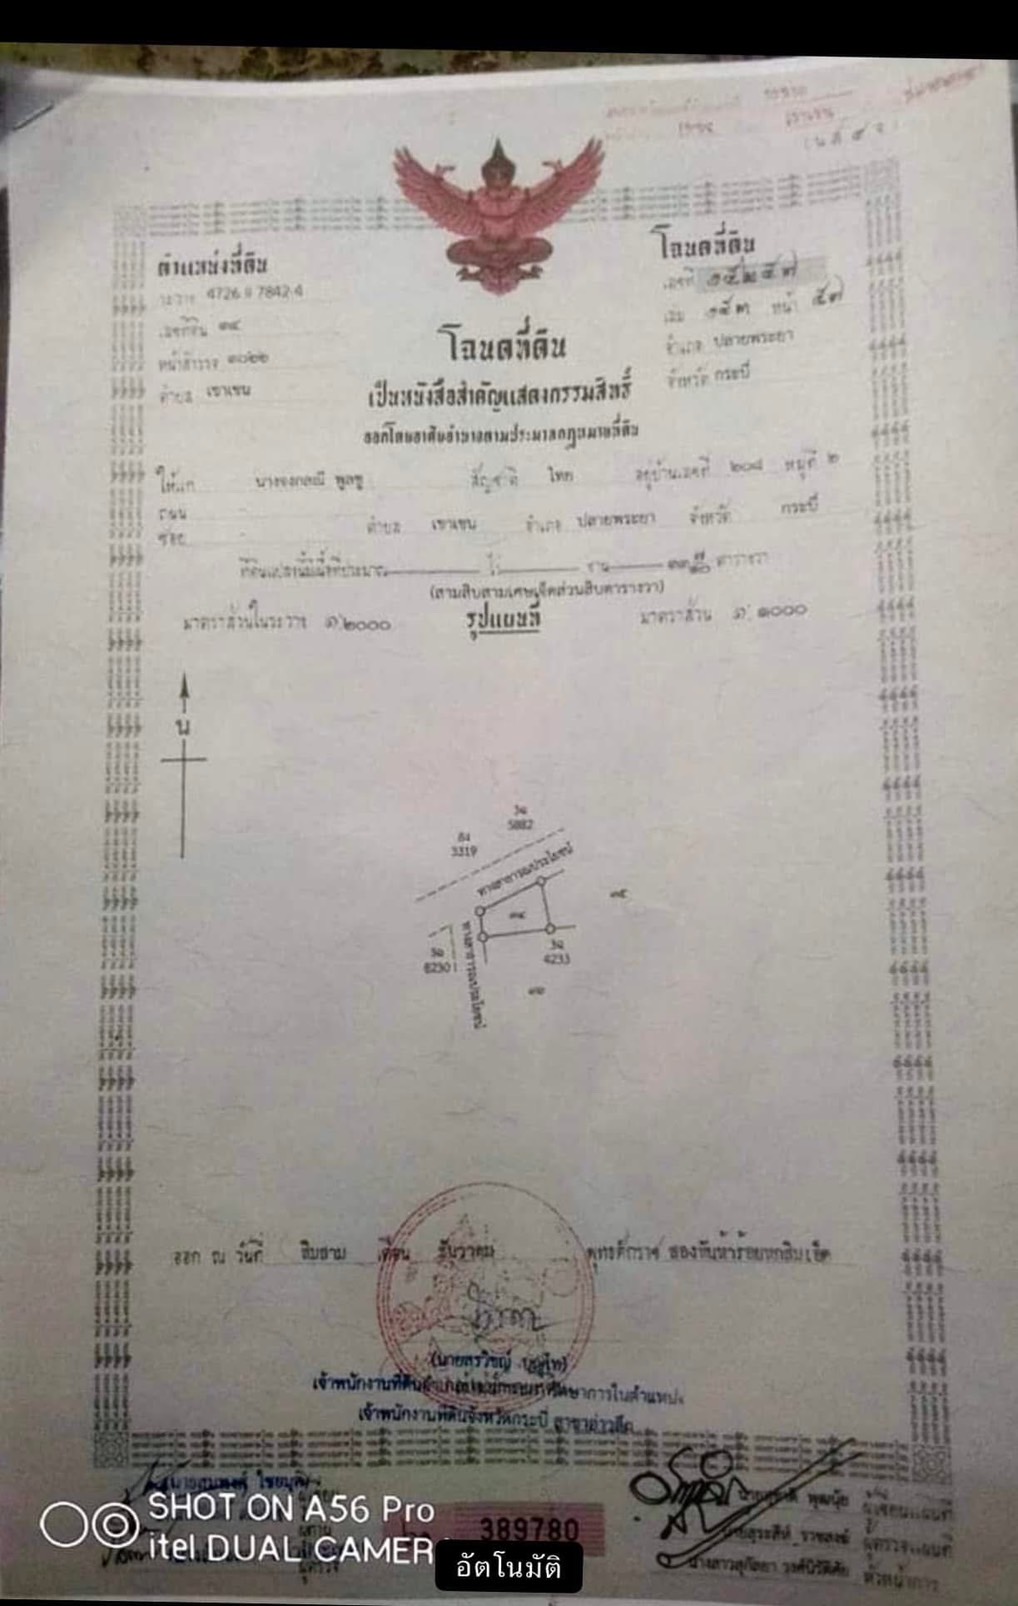 (น.ส.๔ จ.)
ตำแหน่งที่ดิน
ระวาง 4726 II 7842-4
เลขที่ดิน ๓๔
หน้าสำรวจ ๑๐๒๒
ตำบล เขาเขน
โฉนดที่ดิน
เลขที่ ๑๕๒๕๗
เล่ม ๑๕๓ หน้า ๕๗
อำเภอ ปลายพระยา
จังหวัด กระบี่
โฉนดที่ดิน
เป็นหนังสือสำคัญแสดงกรรมสิทธิ์
ออกโดยอาศัยอำนาจตามประมวลกฎหมายที่ดิน
ให้แก่ นางจงกลณี พูลชู สัญชาติ ไทย อยู่บ้านเลขที่ ๒๐๘ หมู่ที่ ๒
ถนน -
ซอย - ตำบล เขาเขน อำเภอ ปลายพระยา จังหวัด กระบี่
ที่ดินแปลงนี้มีเนื้อที่ประมาณ ไร่ งาน ๓๓ ๗/๑๐ ตารางวา
(สามสิบสามเศษเจ็ดส่วนสิบตารางวา)
มาตราส่วนในระวาง ๑:๒๐๐๐ รูปแผนที่ มาตราส่วน ๑:๑๐๐๐
น
5882
3319
ทางสาธารณประโยชน์
๓๕
๓๔
8230
4233
ทางสาธารณประโยชน์
ออก ณ วันที่ สิบสาม เดือน ธันวาคม พุทธศักราช สองพันห้าร้อยหกสิบเอ็ด
เจ้าพนักงานที่ดินจังหวัดกระบี่ สาขาอ่าวลึก
ผู้เขียนแผนที่
ผู้ตรวจแผนที่
หัวหน้าการ
SHOT ON A56 Pro
itel DUAL CAMER
389780
อัตโนมัติ